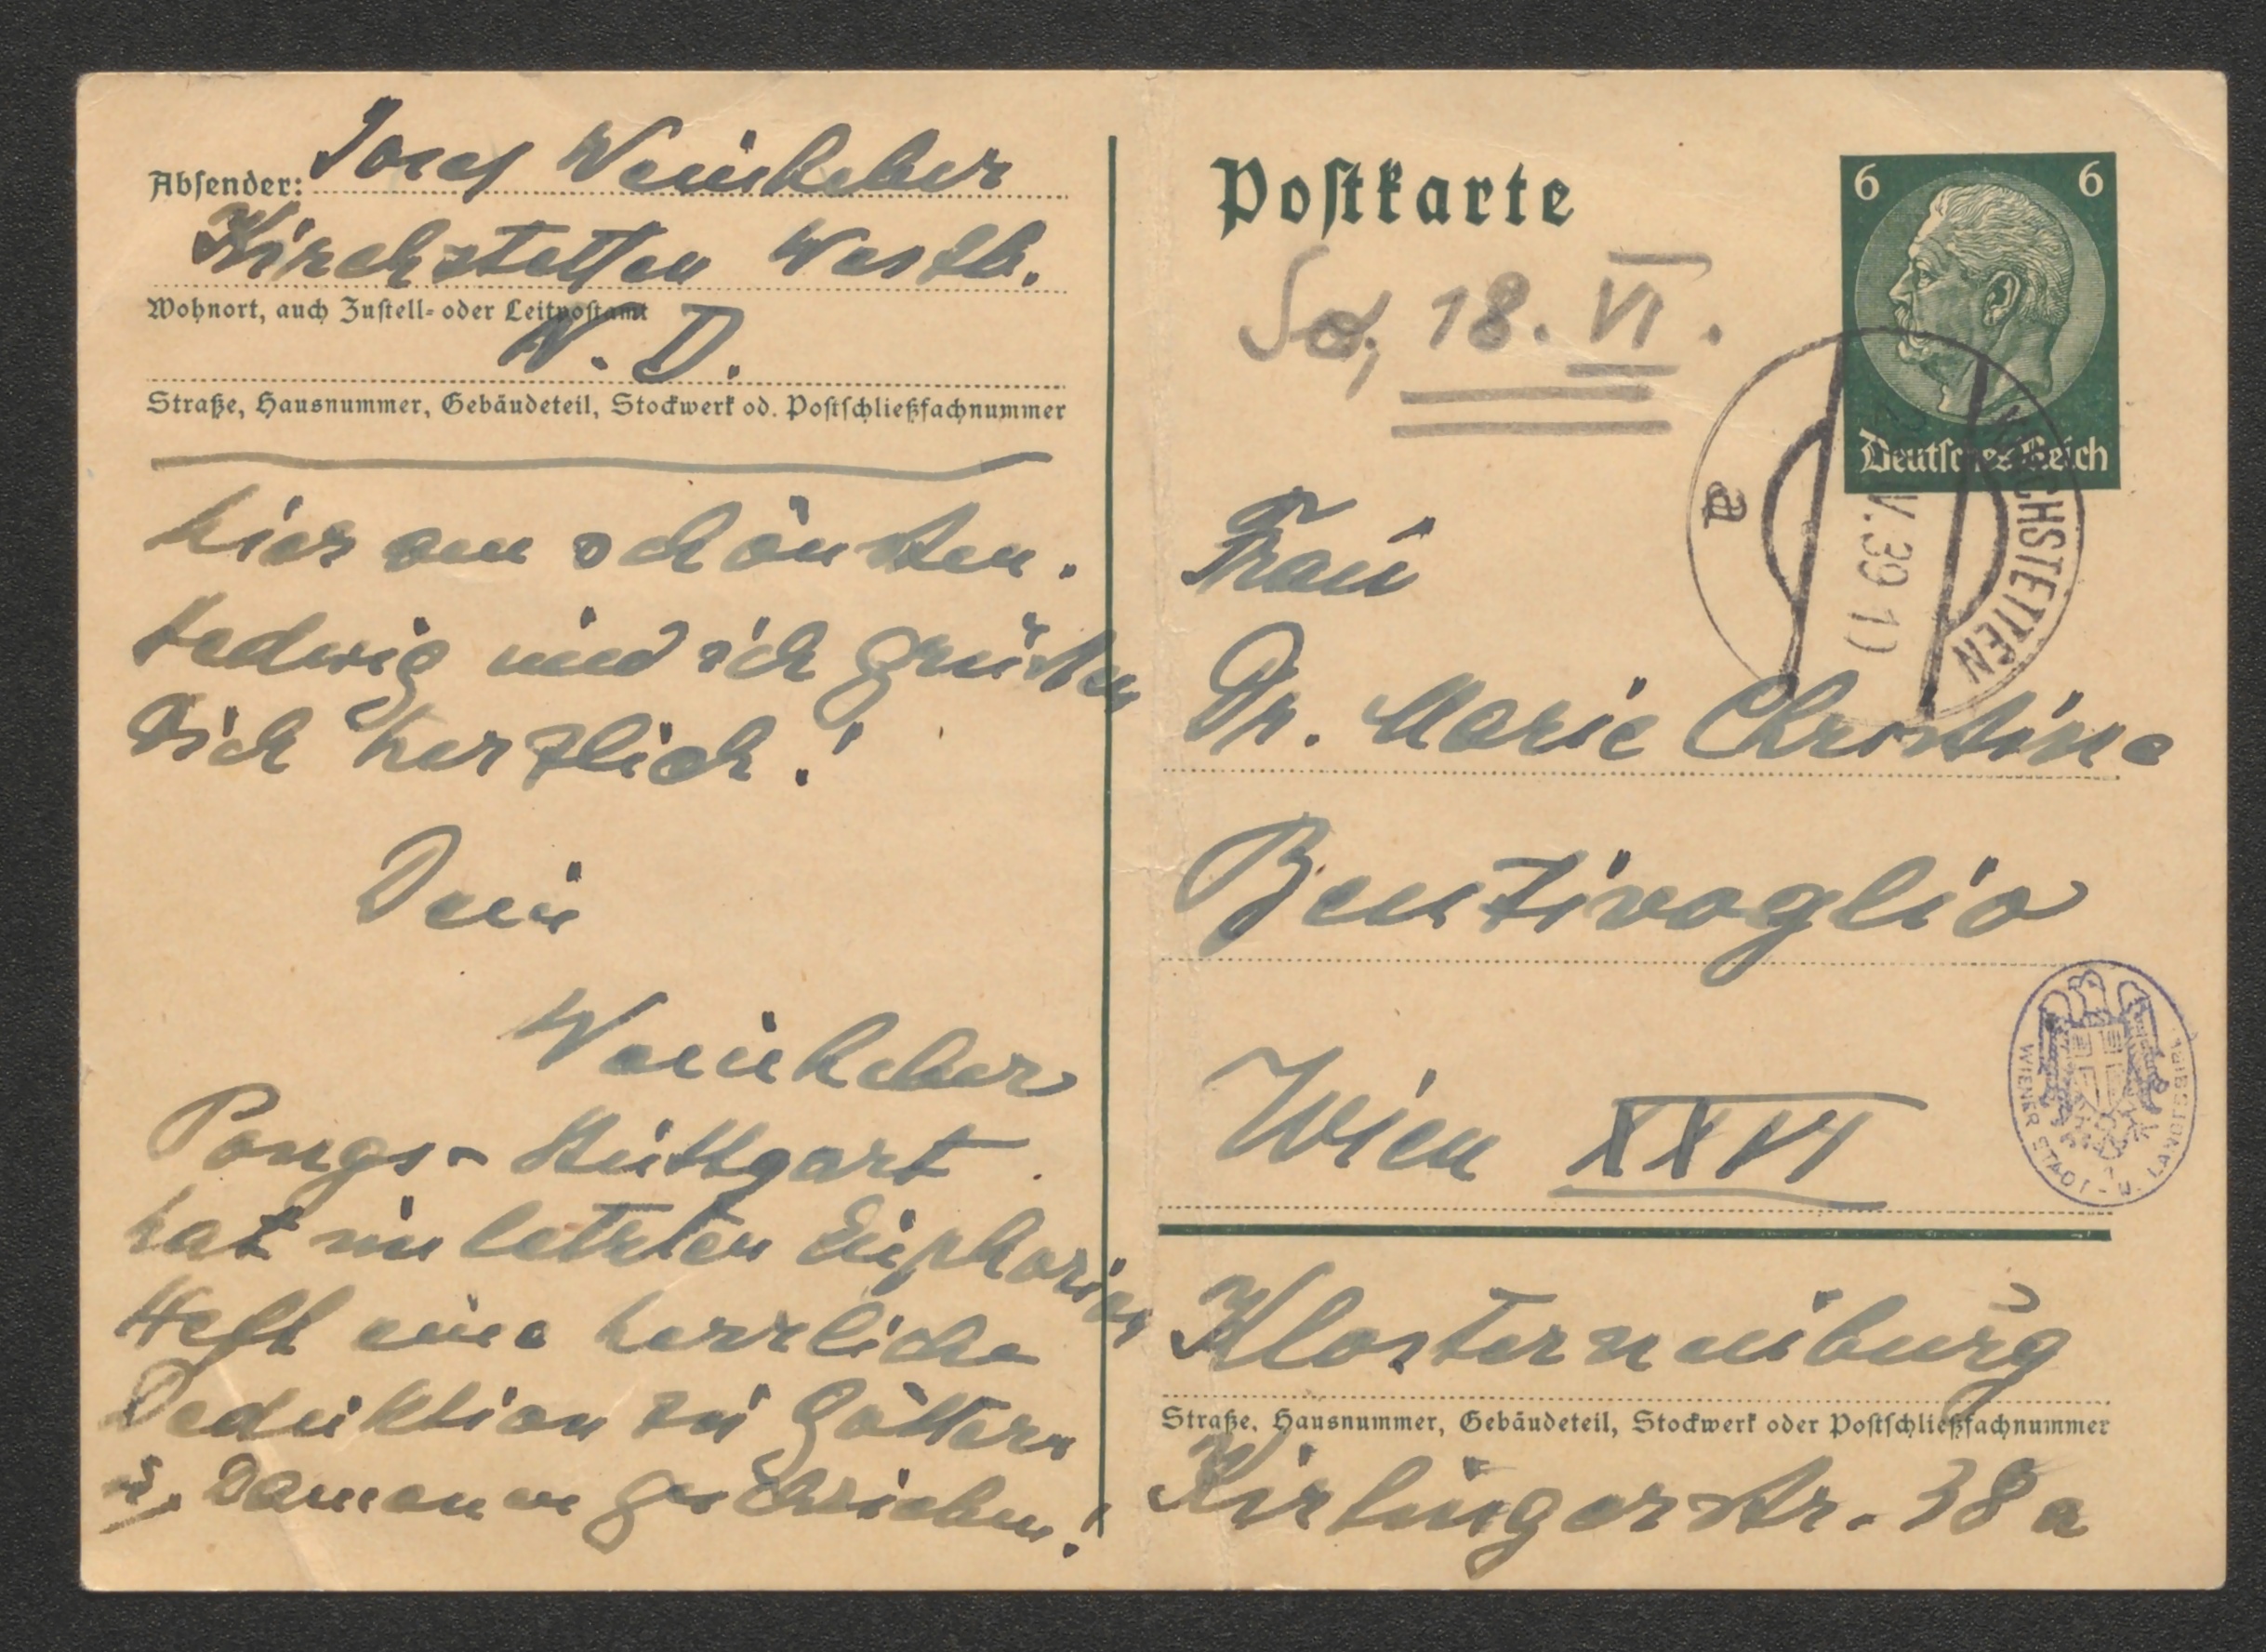 Absender: Josef Weinheber
Kirchstetten Westb.
Wohnort, auch Zustell- oder Leitpostamt
N. D.
Straße, Hausnummer, Gebäudeteil, Stockwerk od. Postschließfachnummer
hier am schönsten.
Hedwig und ich grüßen
Dich herzlich!
Dein
Weinheber
Pongs-Stuttgart
hat im letzten Euphorion
Heft eine herrliche
Deduktion zu Göttern
u. Dämonen geschrieben!
Postkarte
So, 18. VI.
6 6
Deutsches Reich
KIRCHSTETTEN
a
V. 39 1
Frau
Dr. Marie Christine
Bentivoglio
Wien XXVI
WIENER STADT- U. LANDESBIBL.
Klosterneuburg
Straße, Hausnummer, Gebäudeteil, Stockwerk oder Postschließfachnummer
Kierlingerstr. 38a